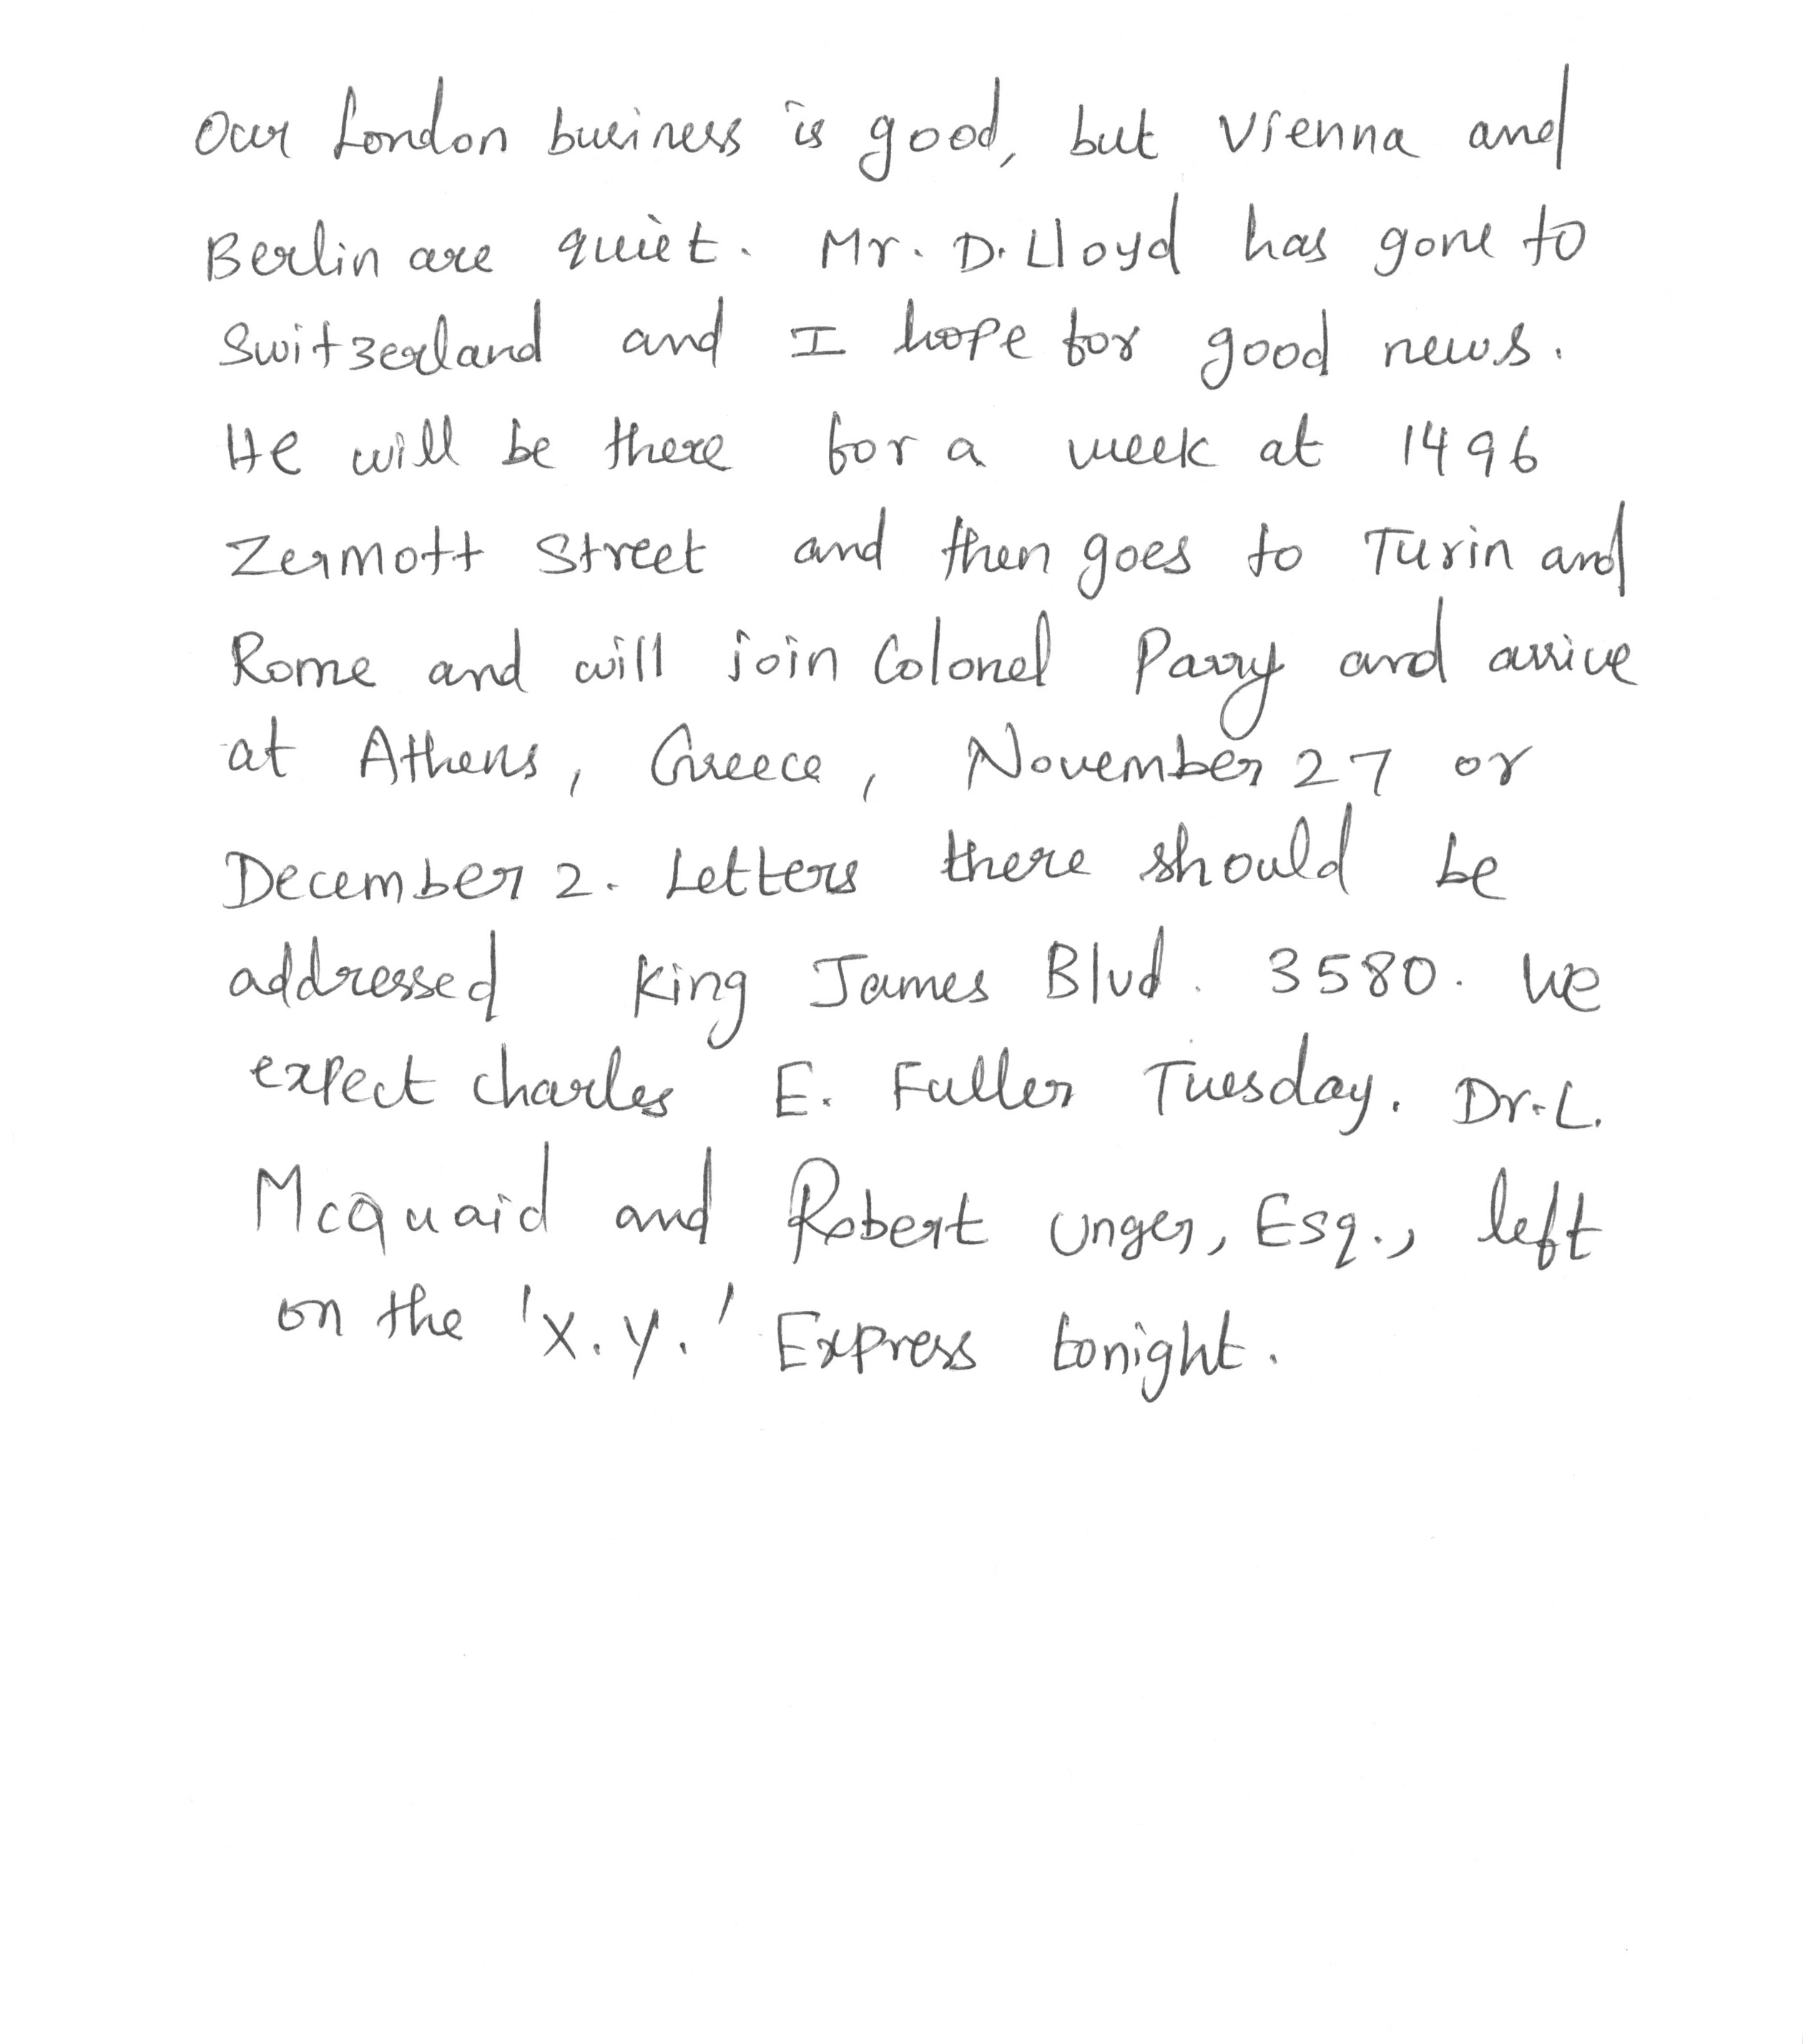 Our London business is good, but Vienna and
Berlin are quiet. Mr. D. Lloyd has gone to
Switzerland and I hope for good news.
He will be there for a week at 1496
Zermott Street and then goes to Turin and
Rome and will join Colonel Parry and arrive
at Athens, Greece, November 27 or
December 2. Letters there should be
addressed King James Blvd. 3580. We
expect Charles E. Fuller Tuesday. Dr. L.
McQuaid and Robert Unger, Esq., left
on the 'X.Y.' Express tonight.